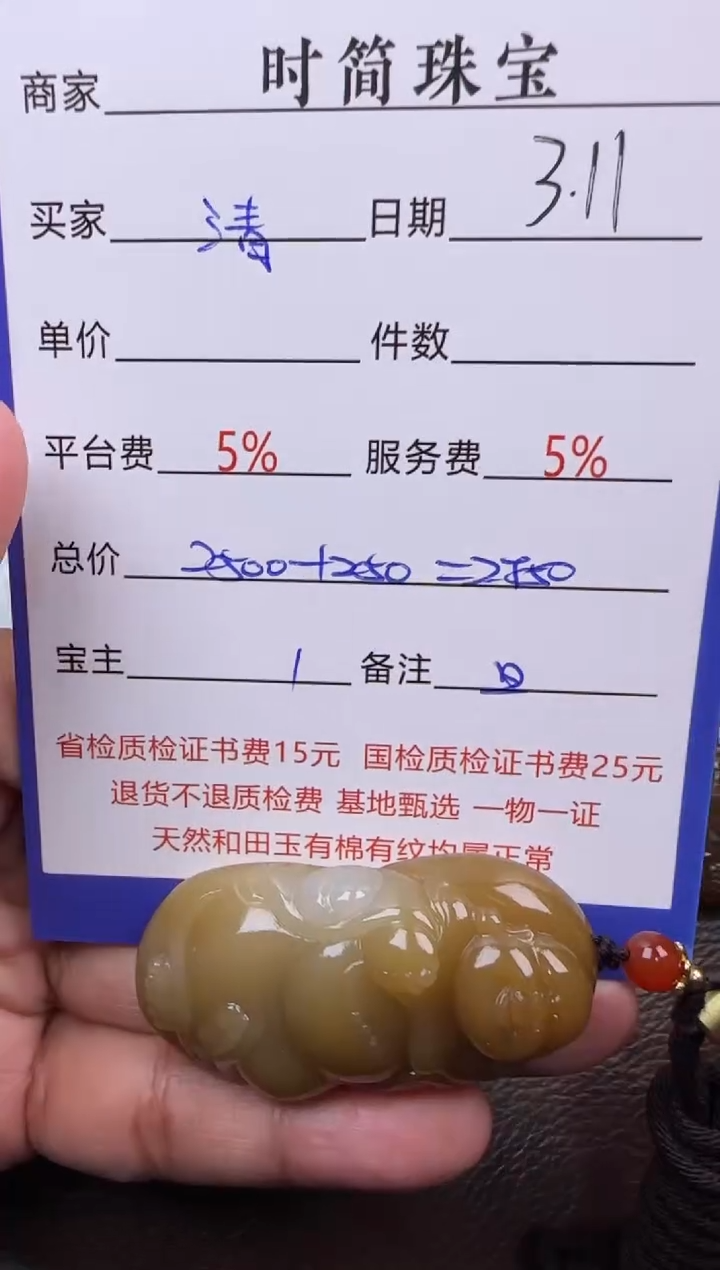 商家 时简珠宝
买家 清 日期 3.11
单价 件数
平台费 5% 服务费 5%
总价 2500+250=2750
宝主 1 备注
省检质检证书费15元 国检质检证书费25元
退货不退质检费 基地甄选 一物一证
天然和田玉有棉有纹均属正常